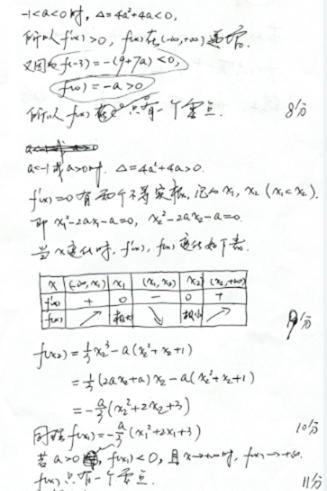 -1<a<0时, Δ=4a²+4a<0,
所以f'(x)>0, f(x)在(-∞,+∞)递增.
又因为f(-3)=-(9+7a)<0,
f(0)=-a>0
所以f(x) 只有一个零点. 8分
a<-1或a>0时. Δ=4a²+4a>0.
f'(x)=0有两个不等实根, 记为x₁, x₂ (x₁<x₂).
即 x₁²-2ax₁-a=0, x₂²-2ax₂-a=0.
当x变化时, f'(x), f(x)变化如下表.
x (-∞,x₁) x₁ (x₁,x₂) x₂ (x₂,+∞)
f'(x) + 0 - 0 +
f(x) ↗ 极大 ↘ 极小 ↗
9分
f(x₂)=1/3x₂³-a(x₂²+x₂+1)
=1/3(2ax₂+a)x₂-a(x₂²+x₂+1)
=-a/3(x₂²+2x₂+3)
同理f(x₁)=-a/3(x₁²+2x₁+3) 10分
若a>0 , f(x₁)<0, 且x→+∞时, f(x)→+∞.
f(x)只有一个零点. 11分